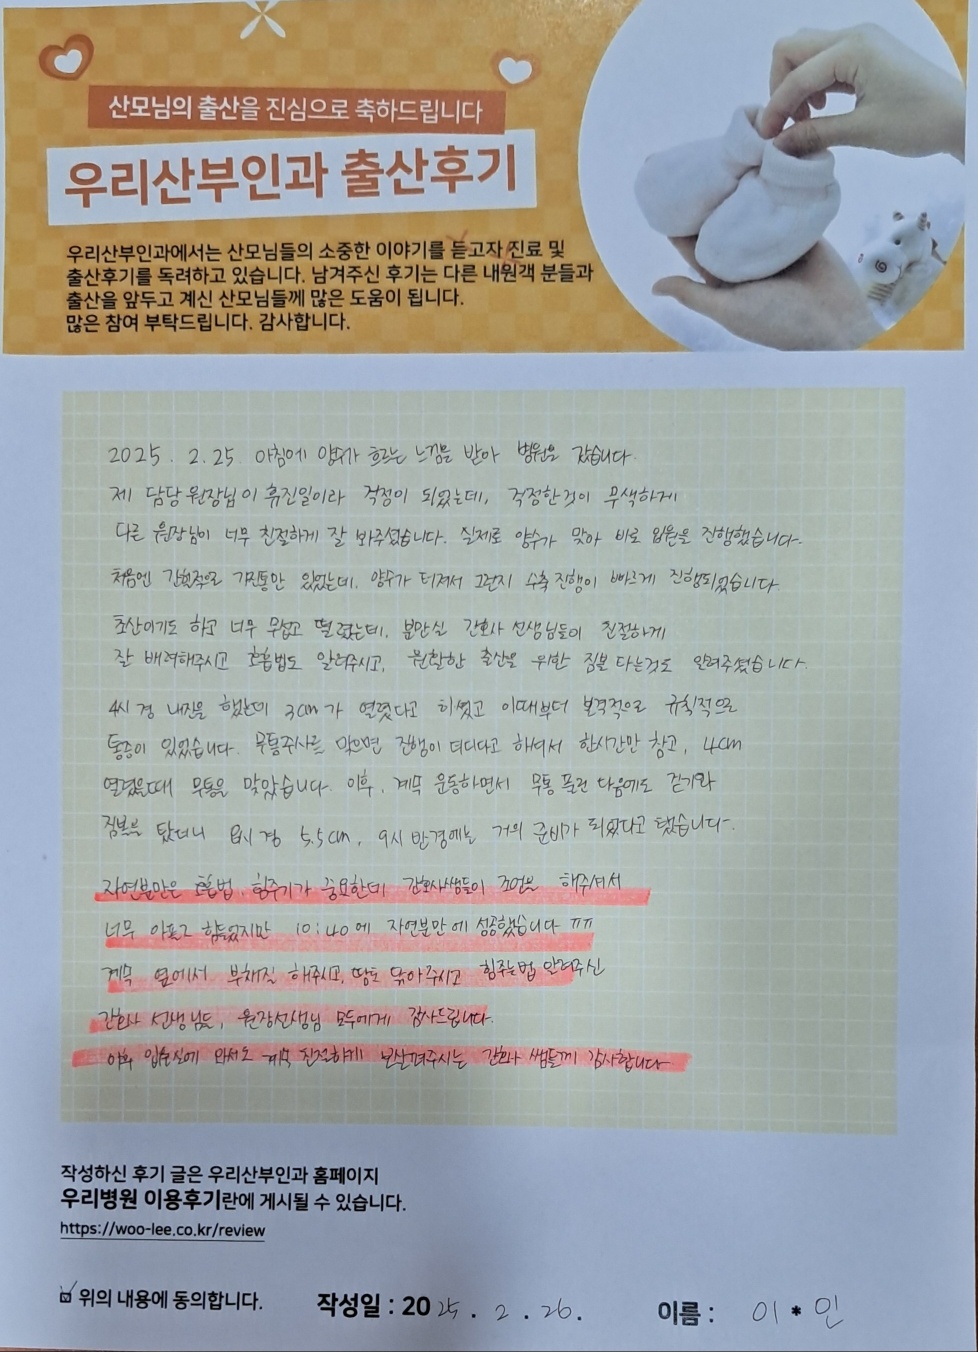 산모님의 출산을 진심으로 축하드립니다
우리산부인과 출산후기
우리산부인과에서는 산모님들의 소중한 이야기를 듣고자 진료 및
출산후기를 독려하고 있습니다. 남겨주신 후기는 다른 내원객 분들과
출산을 앞두고 계신 산모님들께 많은 도움이 됩니다.
많은 참여 부탁드립니다. 감사합니다.
2025. 2.25. 아침에 양수가 흐르는 느낌을 받아 병원을 갔습니다.
제 담당 원장님이 휴진일이라 걱정이 되었는데, 걱정한것이 무색하게
다른 원장님이 너무 친절하게 잘 봐주셨습니다. 실제로 양수가 맞아 바로 입원을 진행했습니다.
처음엔 간헐적으로 가진통만 있었는데, 양수가 터져서 그런지 수축 진행이 빠르게 진행되었습니다.
초산이기도 하고 너무 무섭고 떨렸는데, 분만실 간호사 선생님들이 친절하게
잘 배려해주시고 호흡법도 알려주시고, 원활한 출산을 위한 짐볼 타는것도 알려주셨습니다.
4시 경 내진을 했는데 3cm가 열렸다고 하셨고 이때부터 본격적으로 규칙적으로
통증이 있었습니다. 무통주사를 맞으면 진행이 더디다고 하셔서 한시간만 참고, 4cm
열렸을때 무통을 맞았습니다. 이후, 계속 운동하면서 무통 풀린 다음에도 걷기와
짐볼을 탔더니 8시 경 5.5cm, 9시 반경에는 거의 준비가 되었다고 했습니다.
자연분만은 호흡법, 힘주기가 중요한데 간호사쌤들이 조언을 해주셔서
너무 아프고 힘들었지만 10:40에 자연분만에 성공했습니다 ㅠㅠ
계속 옆에서 부채질 해주시고, 땀도 닦아주시고 힘주는법 알려주신
간호사 선생님들, 원장선생님 모두에게 감사드립니다.
이후 입원실에 와서도 계속 친절하게 보살펴주시는 간호사 쌤들께 감사합니다.
작성하신 후기 글은 우리산부인과 홈페이지
우리병원 이용후기란에 게시될 수 있습니다.
https://woo-lee.co.kr/review
위의 내용에 동의합니다. 작성일 : 2025. 2. 26. 이름 : 이*인